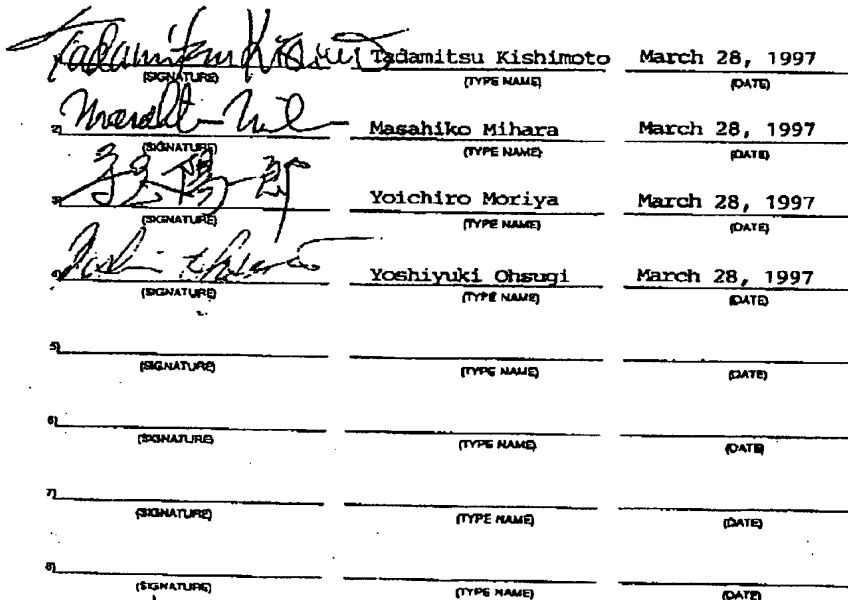 Tadamitsu Kishimoto Tadamitsu Kishimoto March 28, 1997
(SIGNATURE) (TYPE NAME) (DATE)
2) Masahiko Mihara March 28, 1997
(SIGNATURE) (TYPE NAME) (DATE)
3) Yoichiro Moriya March 28, 1997
(SIGNATURE) (TYPE NAME) (DATE)
4) Yoshiyuki Ohsugi March 28, 1997
(SIGNATURE) (TYPE NAME) (DATE)
5)
(SIGNATURE) (TYPE NAME) (DATE)
6)
(SIGNATURE) (TYPE NAME) (DATE)
7)
(SIGNATURE) (TYPE NAME) (DATE)
8)
(SIGNATURE) (TYPE NAME) (DATE)